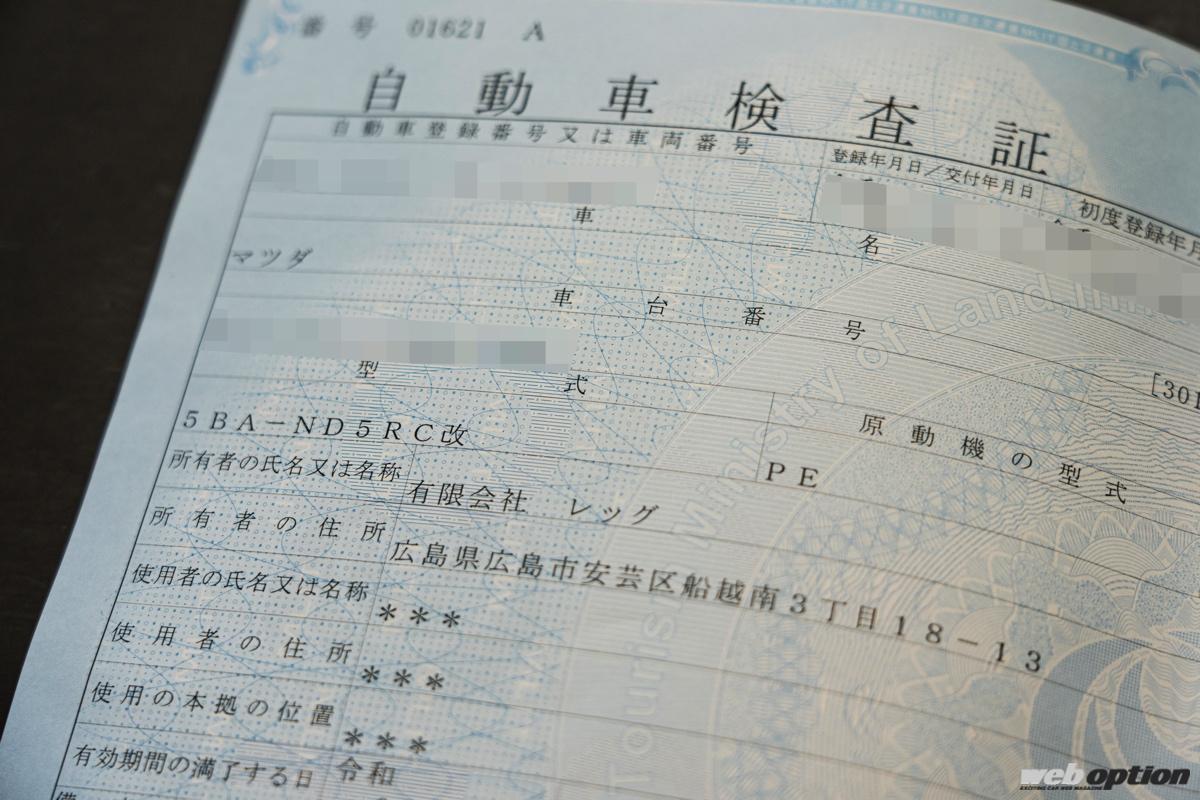 番号 01621 A
自動車検査証
自動車登録番号又は車両番号 登録年月日／交付年月日 初度登録年月
車名
マツダ
車台番号
[301
型式 原動機の型式
5BA－ND5RC改 PE
所有者の氏名又は名称 有限会社 レッグ
所有者の住所 広島県広島市安芸区船越南3丁目18－13
使用者の氏名又は名称 ＊＊＊
使用者の住所 ＊＊＊
使用の本拠の位置 ＊＊＊
有効期間の満了する日 令和
備
Ministry of Land, In
Touris
web option
EXCITING CAR WEB MAGAZINE